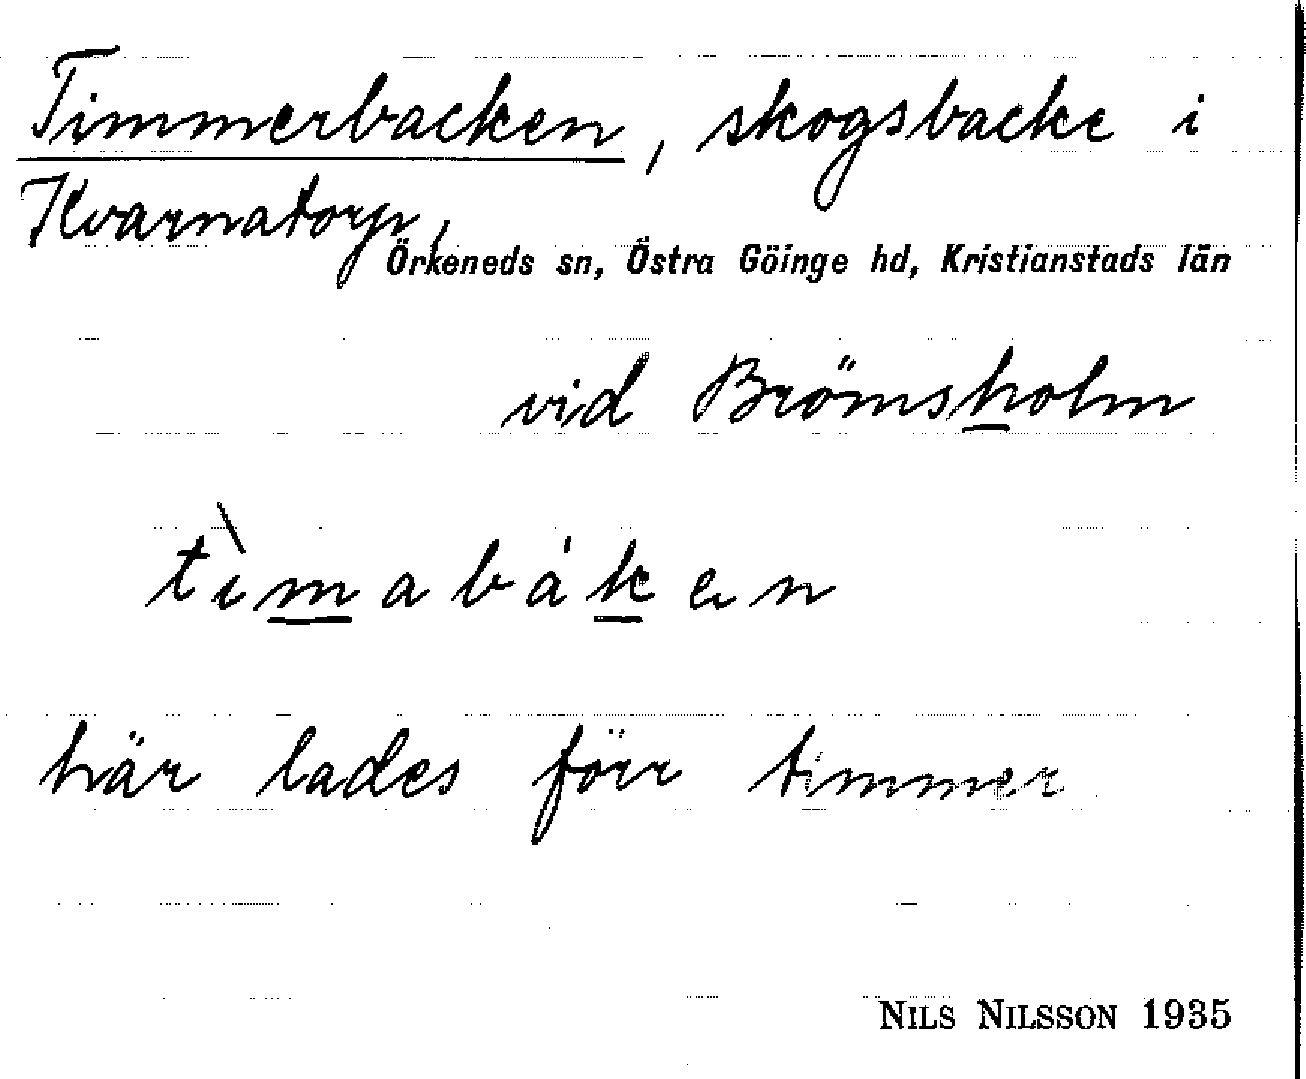 Timmerbacken, skogsbacke i
Kvarnatorp,
Örkeneds sn, Östra Göinge hd, Kristianstads län
vid Brömsholm
tìmabákɘn
här lades förr timmer
NILS NILSSON 1935